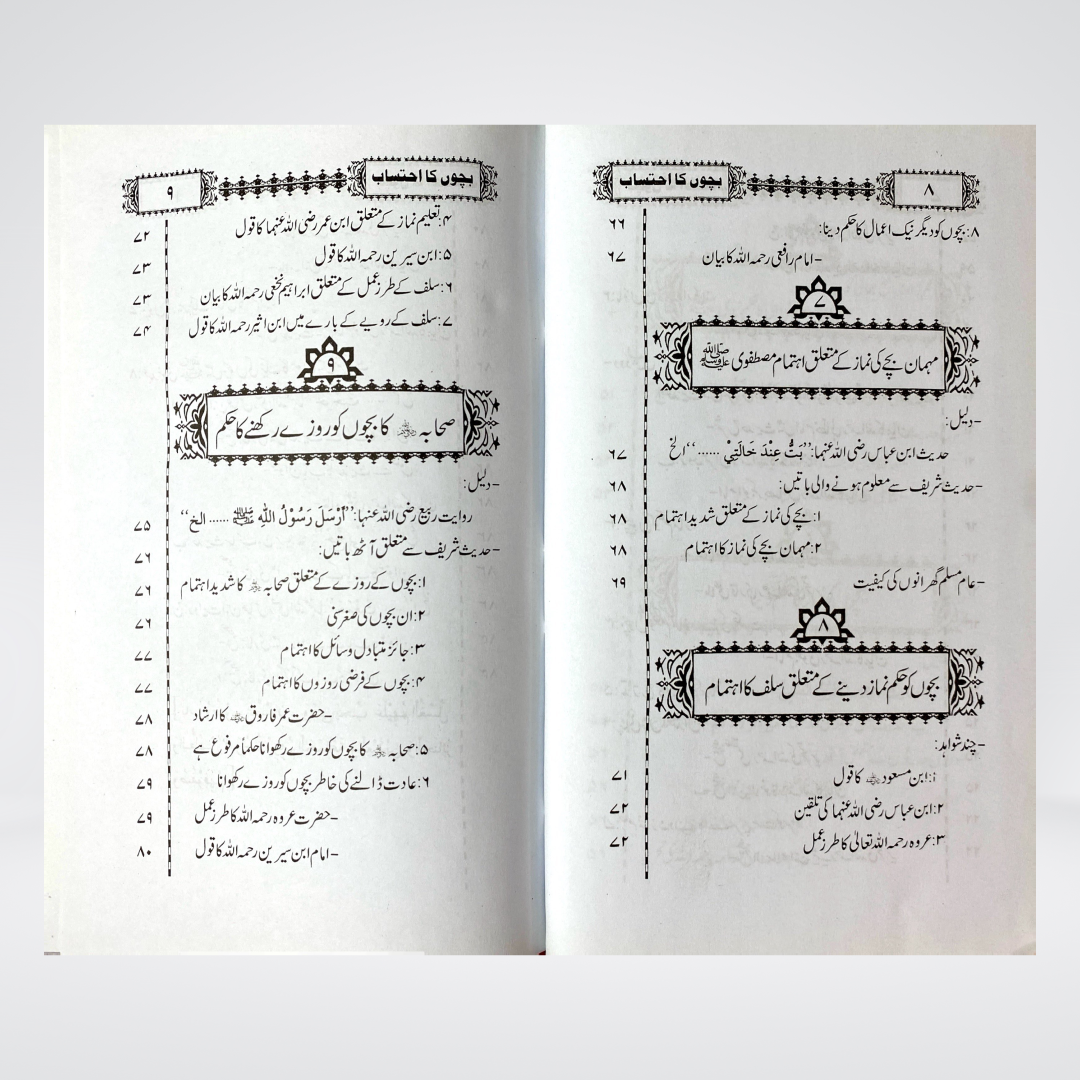 ۸
بچوں کا احتساب
۸: بچوں کو دیگر نیک اعمال کا حکم دینا: ۶۶
-امام رافعی رحمہ اللہ کا بیان ۶۷
۷
مہمان بچے کی نماز کے متعلق اہتمام مصطفوی ﷺ
-دلیل:
حدیث ابن عباس رضی اللہ عنہما: ’’بَتُّ عِنْدَ خَالَتِيْ ......‘‘ الخ ۶۷
-حدیث شریف سے معلوم ہونے والی باتیں: ۶۸
۱: بچے کی نماز کے متعلق شدید اہتمام ۶۸
۲: مہمان بچے کی نماز کا اہتمام ۶۸
-عام مسلم گھرانوں کی کیفیت ۶۹
۸
بچوں کو حکم نماز دینے کے متعلق سلف کا اہتمام
-چند شواہد:
۱: ابن مسعود رضی اللہ عنہ کا قول ۷۱
۲: ابن عباس رضی اللہ عنہما کی تلقین ۷۲
۳: عروہ رحمہ اللہ تعالیٰ کا طرز عمل ۷۲
بچوں کا احتساب
۹
۴: تعلیم نماز کے متعلق ابن عمر رضی اللہ عنہما کا قول ۷۲
۵: ابن سیرین رحمہ اللہ کا قول ۷۳
۶: سلف کے طرز عمل کے متعلق ابراہیم نخعی رحمہ اللہ کا بیان ۷۳
۷: سلف کے رویے کے بارے میں ابن اثیر رحمہ اللہ کا قول ۷۴
۹
صحابہ رضی اللہ عنہم کا بچوں کو روزے رکھنے کا حکم
-دلیل:
روایت ربیع رضی اللہ عنہا: ’’أَرْسَلَ رَسُوْلُ اللهِ ﷺ ...... الخ‘‘ ۷۵
-حدیث شریف سے متعلق آٹھ باتیں: ۷۶
۱: بچوں کے روزے کے متعلق صحابہ رضی اللہ عنہم کا شدید اہتمام ۷۶
۲: ان بچوں کی صغر سنی ۷۶
۳: جائز متبادل وسائل کا اہتمام ۷۷
۴: بچوں کے فرضی روزوں کا اہتمام ۷۷
-حضرت عمر فاروق رضی اللہ عنہ کا ارشاد ۷۸
۵: صحابہ رضی اللہ عنہم کا بچوں کو روزے رکھوانا حکماً مرفوع ہے ۷۸
۶: عادت ڈالنے کی خاطر بچوں کو روزے رکھوانا ۷۹
-حضرت عروہ رحمہ اللہ کا طرز عمل ۷۹
-امام ابن سیرین رحمہ اللہ کا قول ۸۰